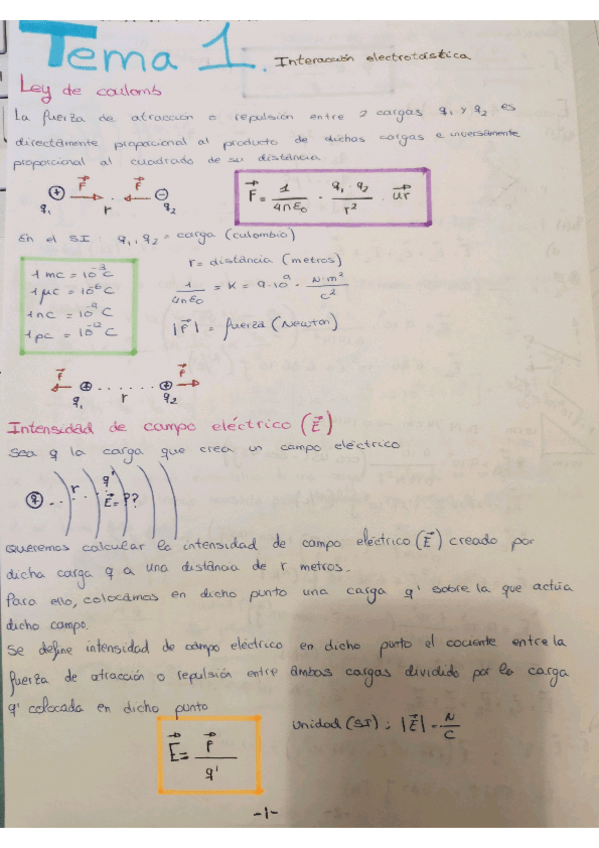 Tema 1. Interacción electrotástica
Ley de coulomb
La fuerza de atracción o repulsión entre 2 cargas q₁ y q₂ es
directamente propocional al producto de dichas cargas e inversamente
proporcional al cuadrado de su distáncia
F F
+ −
q₁ r q₂
F = 1/4πε₀ · q₁ · q₂/r² · ur
En el SI: q₁, q₂ = carga (culombio)
r = distáncia (metros)
1 mc = 10⁻³C
1 μc = 10⁻⁶C
1 nc = 10⁻⁹C
1 pc = 10⁻¹²C
1/4πε₀ = K = 9·10⁹ · N·m²/c²
|F| = fuerza (Newton)
F F
+ ...... +
q₁ r q₂
Intensidad de campo eléctrico (E)
Sea q la carga que crea un campo eléctrico
q r q' E=??
Queremos calcular la intensidad de campo eléctrico (E) creado por
dicha carga q a una distáncia de r metros.
Para ello, colocamos en dicho punto una carga q' sobre la que actúa
dicho campo.
Se define intensidad de campo eléctrico en dicho punto el cociente entre la
fuerza de atracción o repulsión entre ambas cargas dividido por la carga
q' colocada en dicho punto
E = F/q'
Unidad (SI): |E| = N/C
-1-